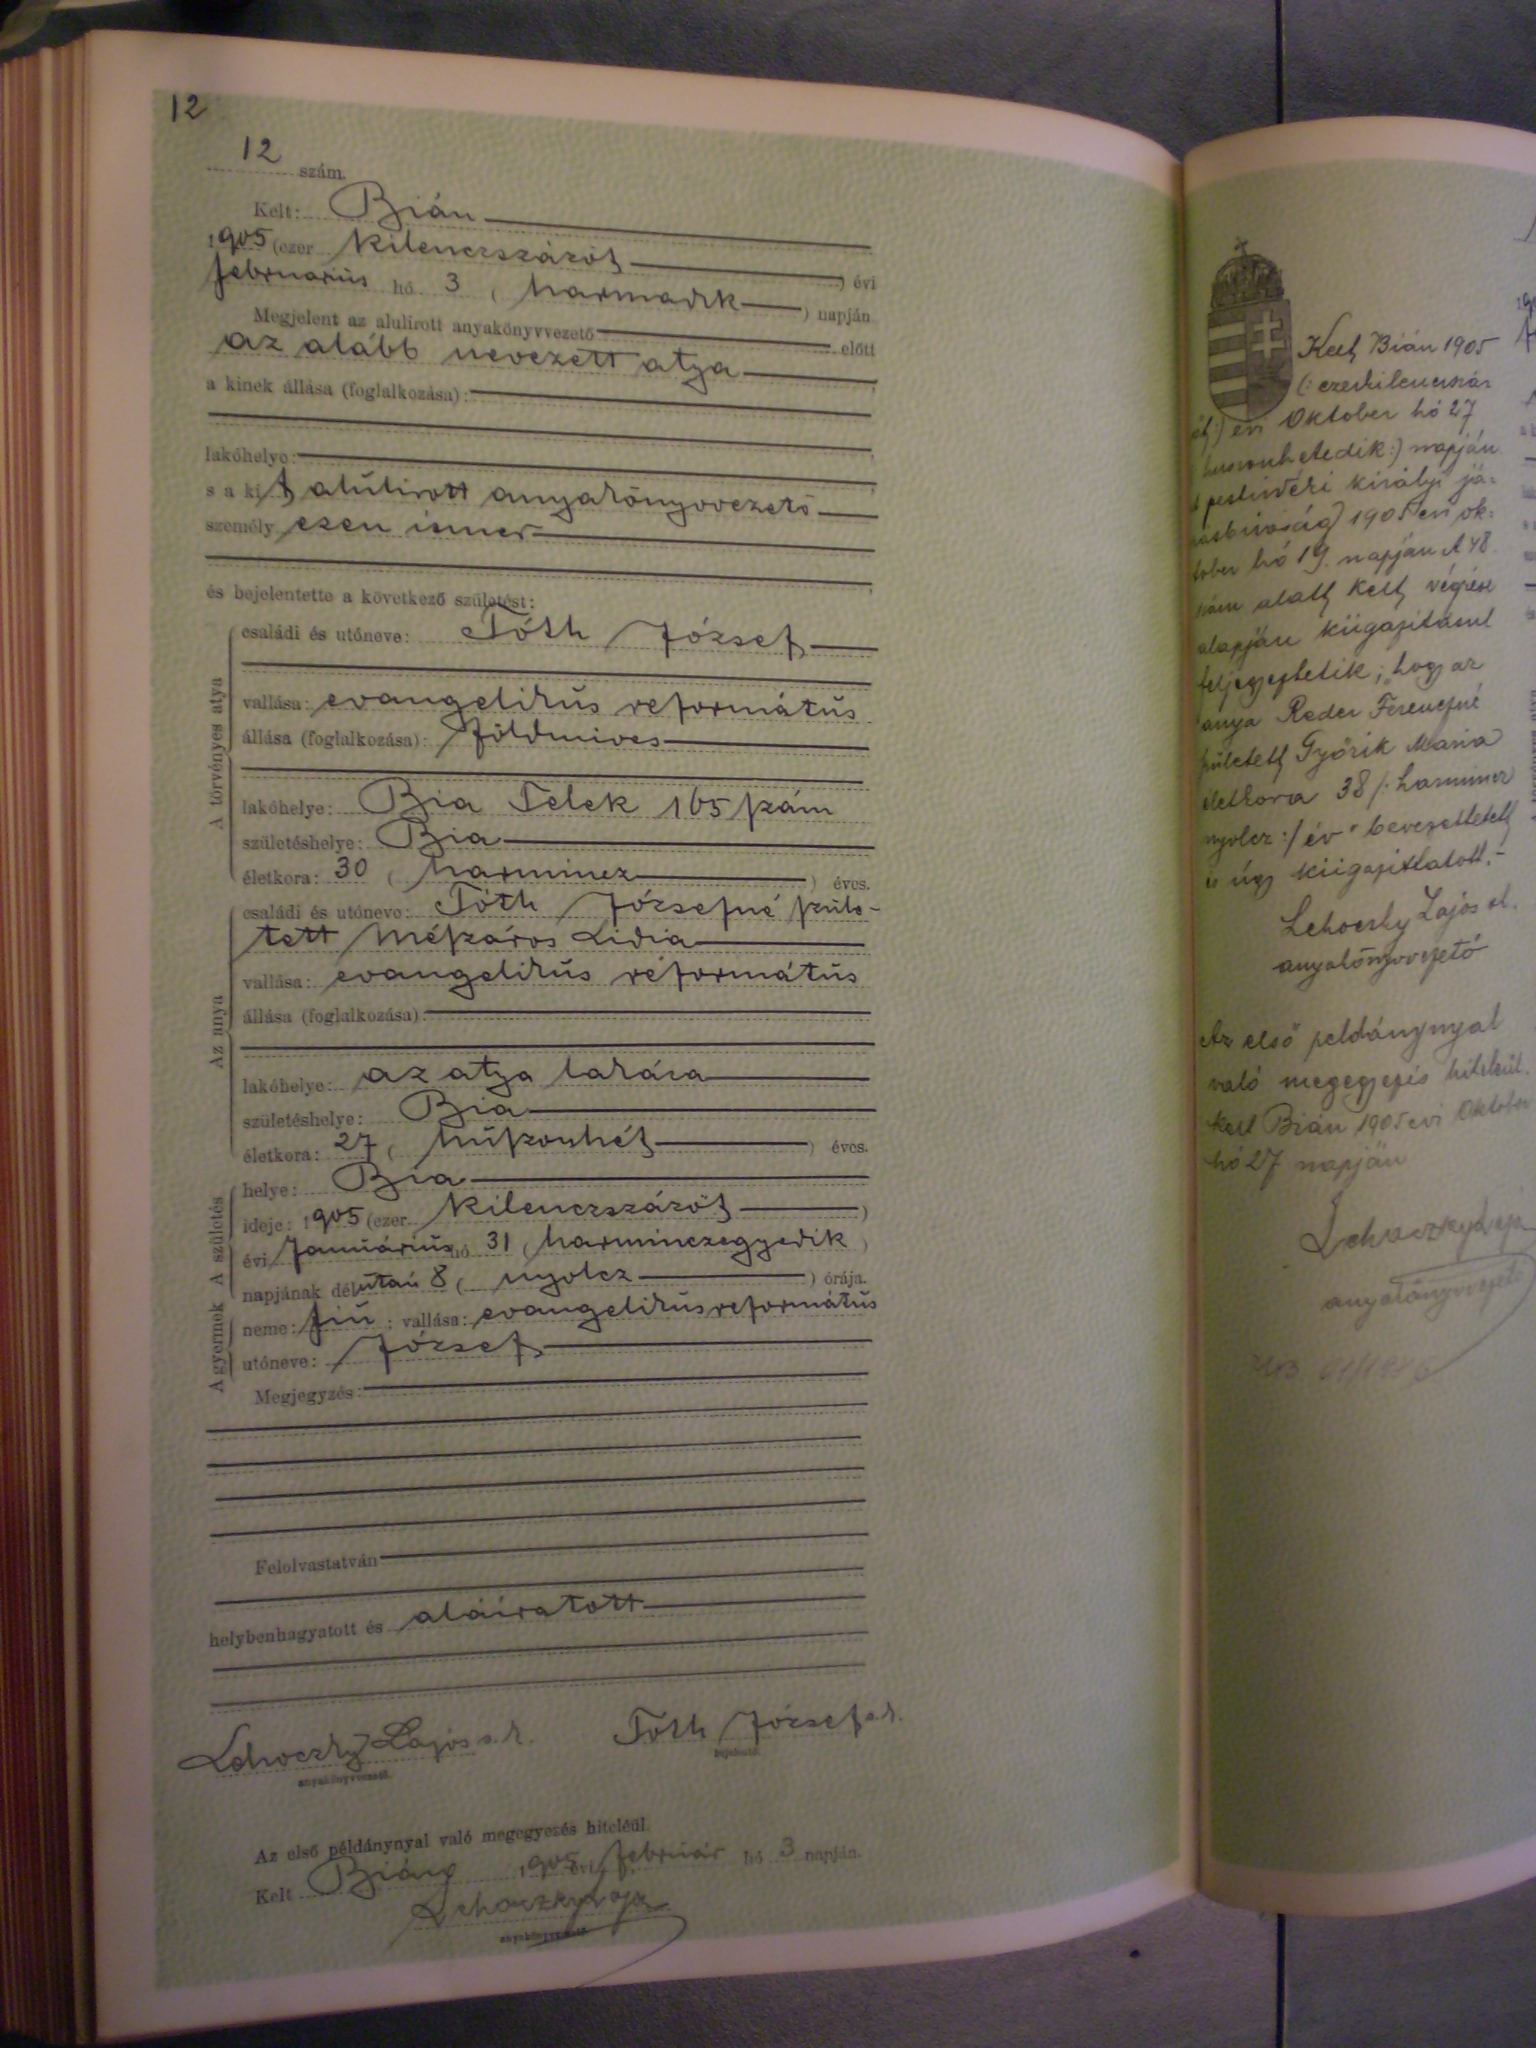 12
12 szám.
Kelt: Bián
1905 (ezer kilenczszázöt) évi
februarius hó 3 (harmadik) napján
Megjelent az alulirott anyakönyvvezető előtt
az alább nevezett atya
a kinek állása (foglalkozása):
lakóhelye:
s a kit alulirott anyakönyvvezető
személyesen ismer
és bejelentette a következő születést:
A törvényes atya
családi és utóneve: Tóth József
vallása: evangelikus református
állása (foglalkozása): földmives
lakóhelye: Bia Telek 165 szám
születéshelye: Bia
életkora: 30 (harmincz) éves.
Az anya
családi és utóneve: Tóth Józsefné szüle-
tett Mészáros Lidia
vallása: evangelikus református
állása (foglalkozása):
lakóhelye: az atya lakása
születéshelye: Bia
életkora: 27 (húszonhét) éves.
A születés
helye: Bia
ideje: 1905 (ezer kilenczszázöt)
évi Januárius hó 31 (harminczegyedik)
napjának délután 8 (nyolcz) órája.
A gyermek
neme: fiú; vallása: evangelikus református
utóneve: József
Megjegyzés:
Felolvastatván
helybenhagyatott és aláiratott
Lehoczky Lajos s. k. Tóth József s. k.
anyakönyvvezető. bejelentő.
Az első példánynyal való megegyezés hiteléül.
Kelt Bián 1905 évi február hó 3 napján.
Lehoczky Lajos
anyakönyvvezető.
Kelt Bián 1905
(: ezerkilenczszáz
öt :) évi Oktober hó 27
huszonhetedik :) napján
pestvidéki királyi já-
rásbiróság 1905 évi ok-
tober hó 19. napján A 48
szám alatt kelt végzése
alapján kiigazitásul
feljegyeztetik, hogy az
anya Reder Ferenczné
született Györik Maria
életkora 38 /: harmincz
nyolcz :/ év" bevezettetett
és úgy kiigazittatott.-
Lehoczky Lajos sk.
anyakönyvvezető
Az első példánynyal
való megegyezés hiteléül.
Kelt Bián 1905 évi Oktober
hó 27 napján
Lehoczky Lajos
anyakönyvvezető